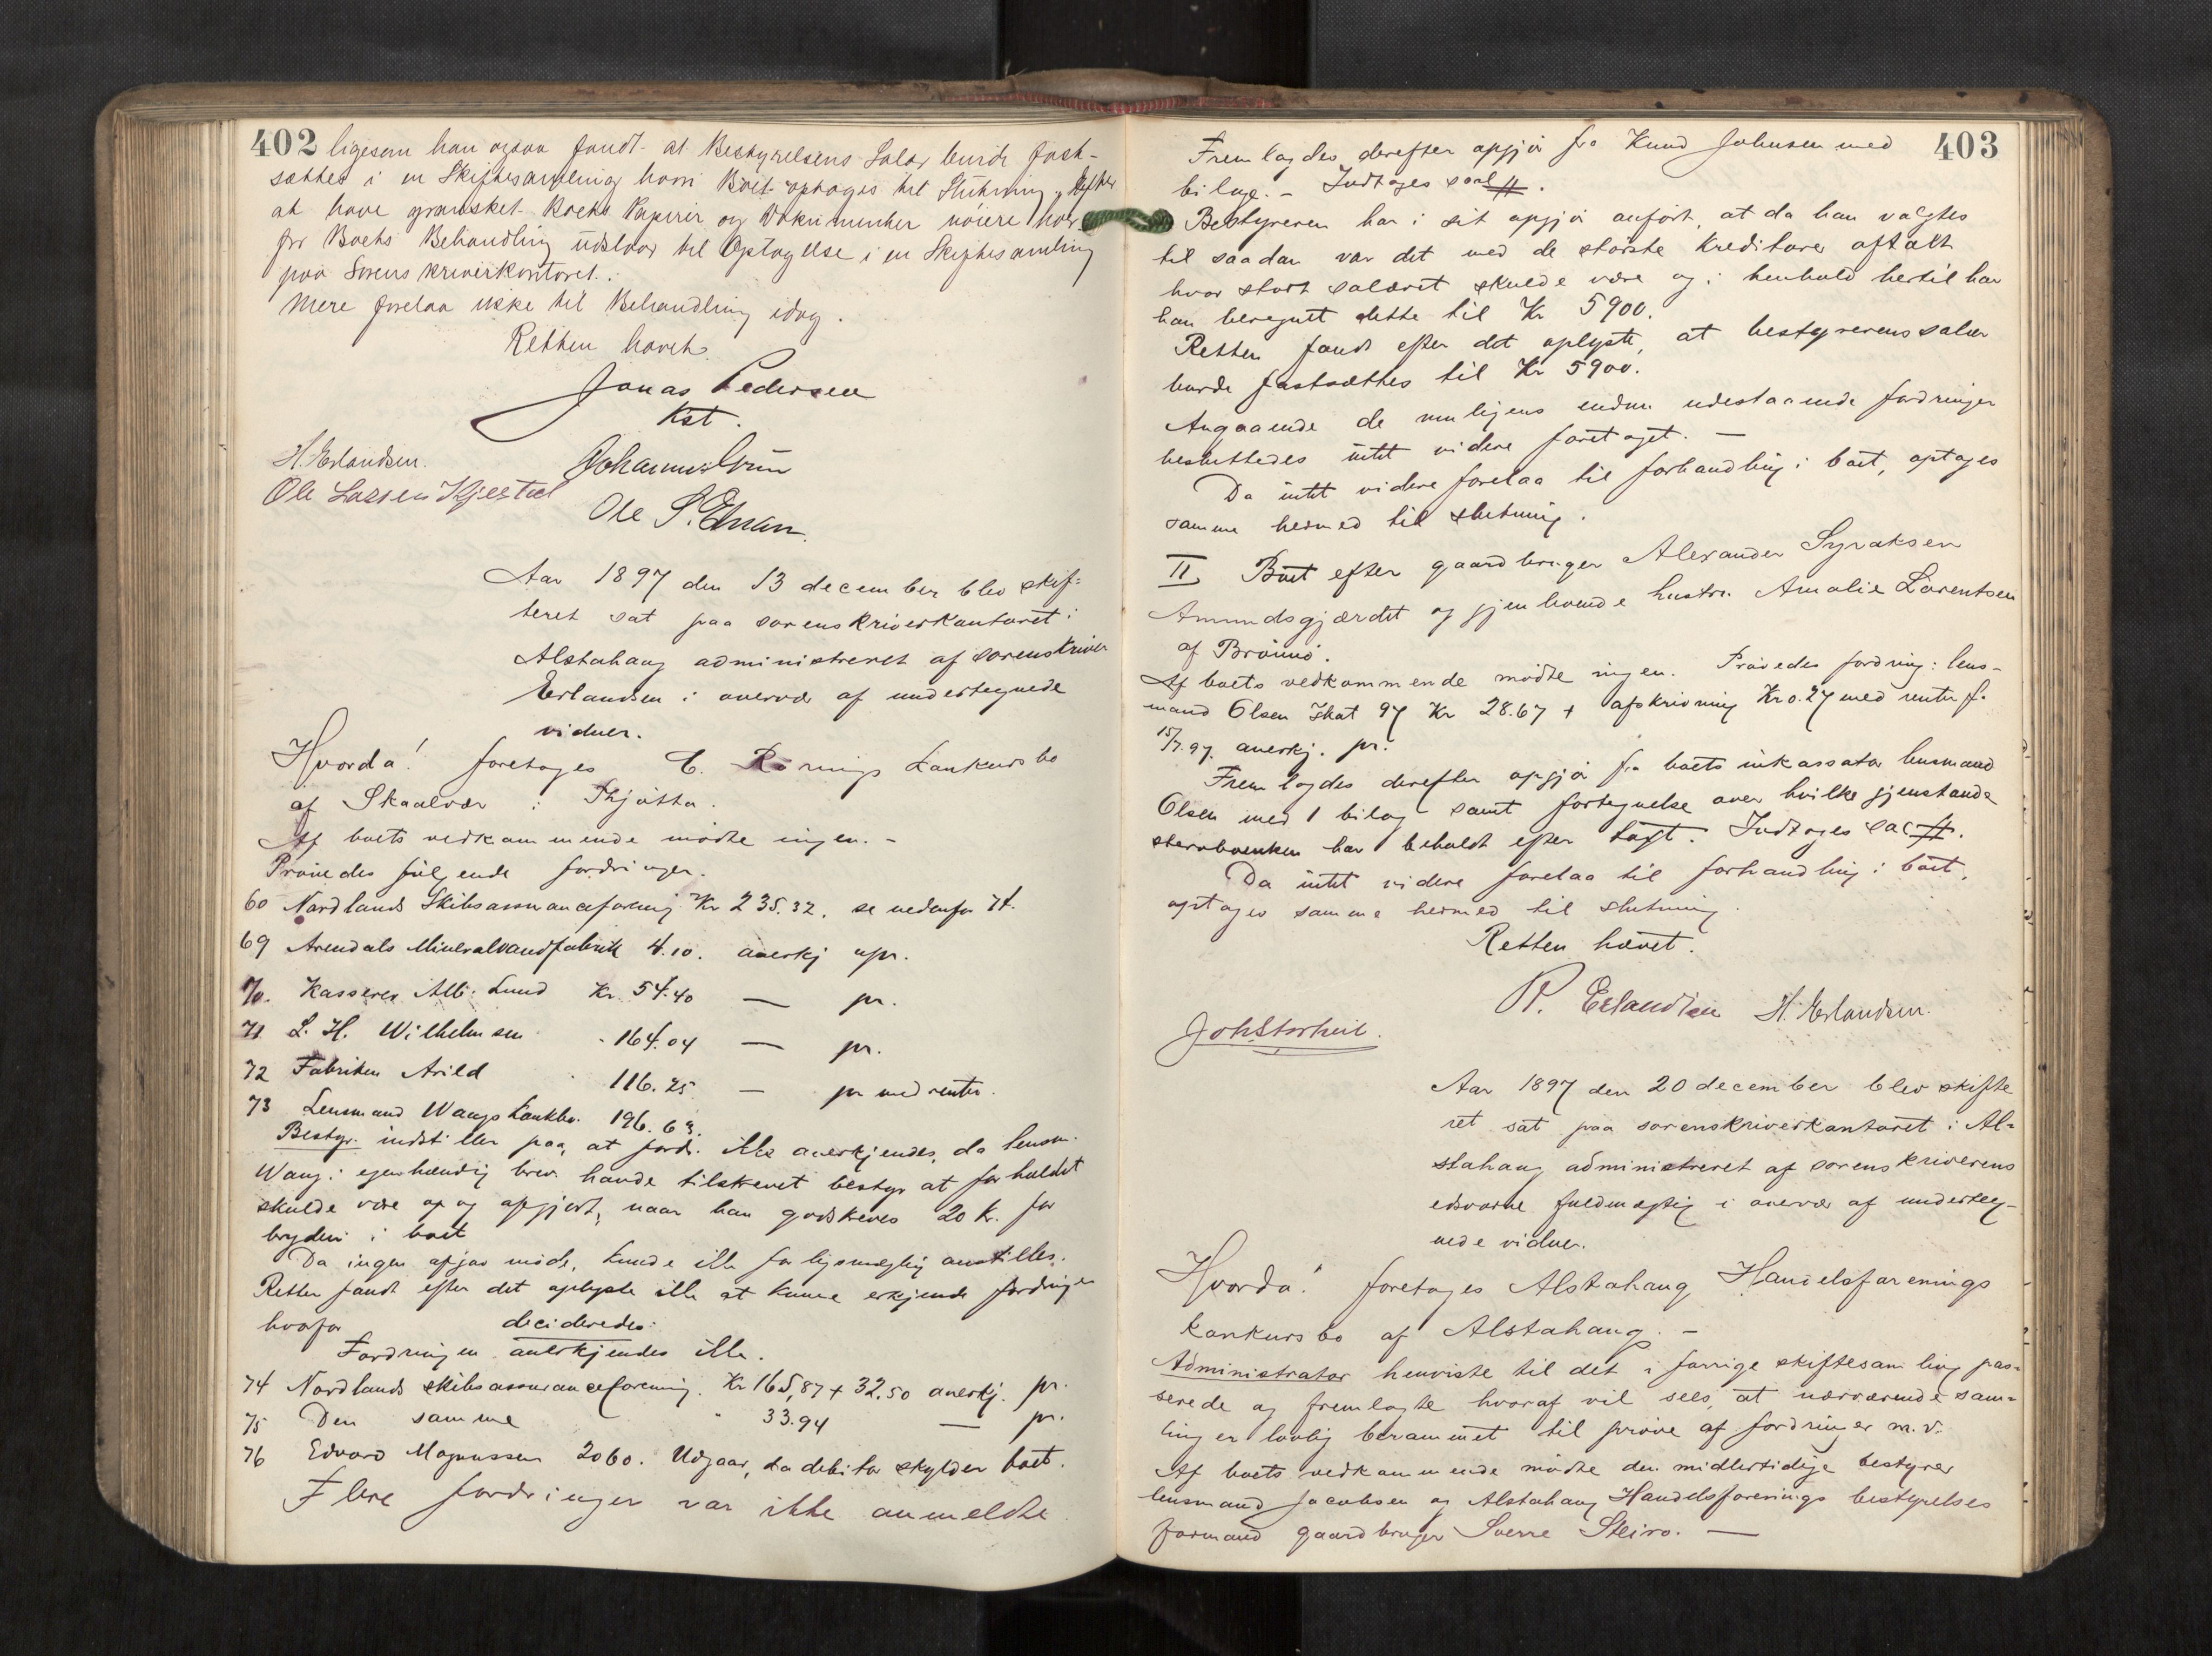 402 ligesom han ogsaa fandt at Bestyrelsens Salar burde fast-
sættes i en Skiftesamling hvori Boet optages til Slutning. Efter
at have gransket Boets Papirer og Dokumenter nöiere
for Boets Behandling udstaar til Optagelse i en Skiftesamling
paa Sorenskriverkontoret.
Mere forelaa ikke til Behandling idag.
Retten hævet
Jonas Pedersen
Kst.
H. Erlandsen.
Ole Larsen
Ole
Aar 1897 den 13 december blev skif-
teret sat paa sorenskriverkontoret i
Alstahaug administreret af sorenskriver
Erlandsen i overvær af undertegnede
vidner.
Hvorda! foretoges C. Rönings konkursbo
af Skaalvær i Thjötta.
Af boets vedkommende mödte ingen. -
Prövedes fölgende fordringer.
60 Nordlands Skibsassuranceforening Kr 235.32. se nedenfor 74.
69 Arendals Mineralvandfabrik 4.10. anerkj upr.
70. Kasserer Alb. Lund Kr. 54.40 — pr.
71 L. H. Wilhelmsen - 164.04 — pr.
72 Fabriken Arild 116.25 — pr med renter.
73 Lensmand Wangs konkbo. 196.63.
Bestyr. indstiller paa, at fordr. ikke anerkjendes, da lensm.
Wang i egenhændig brev havde tilskrevet bestyr at forholdet
skulde være op og afgjort, naar han godskreves 20 kr. for
bryderi i boet
Da ingen afgav möde, kunde ikke forligsmægling anstilles.
Retten fandt efter det oplyste ikke at kunne erkjende fordringen
hvorfor decideredes:
Fordringen anerkjendes ikke.
74 Nordlands skibsassuranceforening. Kr 165,87 + 32.50 anerkj. pr.
75 Den samme " 33.94 — pr.
76 Edvard Magnussen 2060. Udgaar, da debitor skylder boet.
Flere fordringer var ikke anmeldte
403
Fremlagdes derefter opgjör fra Knud Johnsen med
bilage. - Indtages
Bestyreren har i sit opgjör anfört, at da han valgtes
til saadan var det med de störste kreditorer aftalt
hvor stort salæret skulde være og i henhold hertil har
han beregnet dette til Kr 5900.
Retten fandt efter det oplyste, at bestyrerens salær
burde fastsættes til Kr 5900.
Angaaende de muligens endnu udestaaende fordringer
besluttedes intet videre foretaget. —
Da intet videre forelaa til forhandling i boet, optages
samme hermed til slutning.
II Boet efter gaardbruger Alexander Syraksen
Amundsgjærdet og gjenlevende hustru Amalie Lorentsen
af Brönnö.
Af boets vedkommende mödte ingen. Prövedes fordring: lens-
mand Olsen skat 97 Kr 28.67 + afskrivning Kr 0.27 med renter fr.
15/7.97. anerkj. pr.
Fremlagdes derefter opgjör fra boets inkassator lensmand
Olsen med 1 bilag samt fortegnelse over hvilke gjenstande
stervboenken har beholdt efter taxt. Indtages
Da intet videre forelaa til forhandling i boet,
optages samme hermed til slutning.
Retten hævet.
R. Erlandsen H. Erlandsen.
Joh Storheil.
Aar 1897 den 20 december blev skifte
ret sat paa sorenskriverkontoret i Al-
stahaug administreret af sorenskriverens
edsvorne fuldmægtig i overvær af underteg-
nede vidner.
Hvorda! foretoges Alstahaug Handelsforenings
konkursbo af Alstahaug. -
Administrator henviste til det i forrige skiftesamling pas-
serede og fremlagte hvoraf vil sees, at nærværende sam-
ling er lovlig berammet til pröve af fordringer m.v.
Af boets vedkommende mödte den midlertidige bestyrer
lensmand Jacobsen og Alstahaug Handelsforenings bestyrelses
formand gaardbruger Sverre Steiro. —